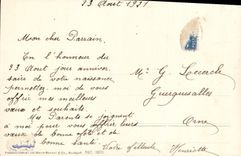 23 Août 1931
Mon cher Parrain,
En l'honneur du
23 Août jour anniver
saire de votre naissance
permettez moi de vous
offrir mes meilleurs
vœux et souhaits.
Mes Parents se joignent
à moi pour vous offrir leurs
vœux de bonne fête et de
bonne Santé.
Votre filleule,
Henriette
Mr G. Locard
Guerquesalles
Orne